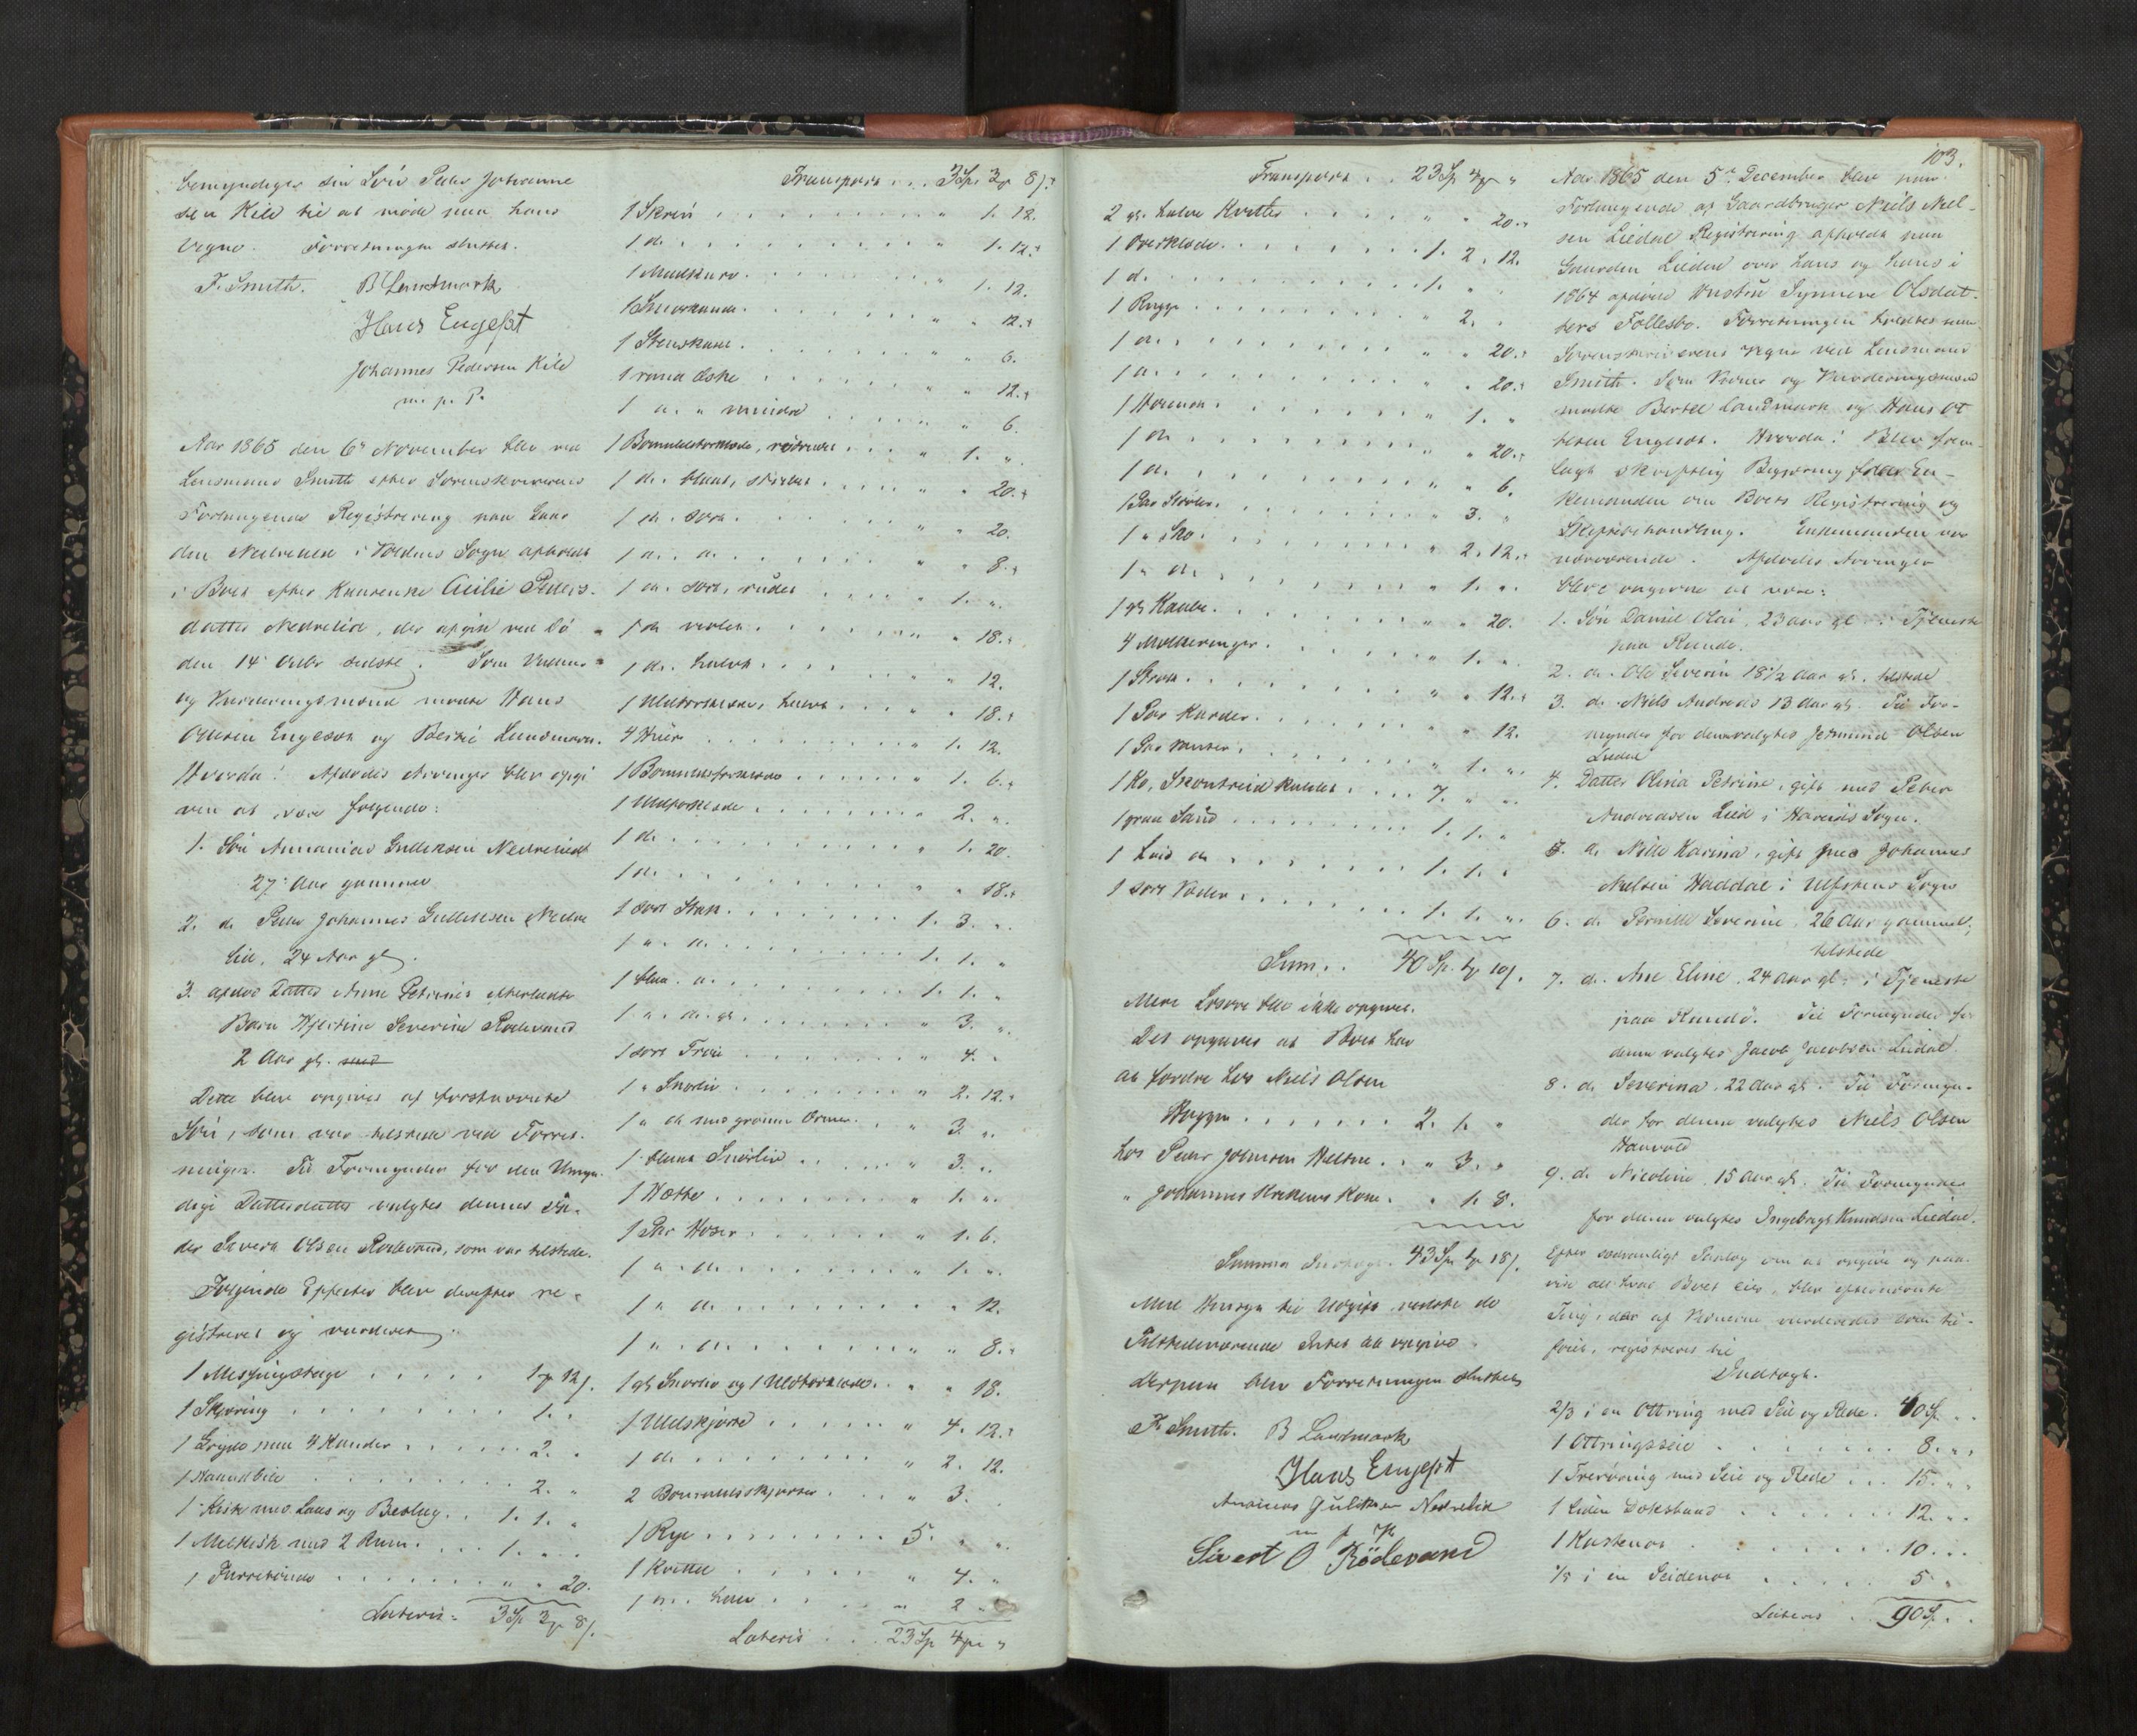 bemyndiger sin Sön Peder Johanne
sen Kile til at møde paa hans
Vegne. Forretningen sluttet.
F. Smith. B Landmark
Hans Engeset
Johannes Pedersen Kile
m. p. P.
Aar 1865 den 6te November blev ved
Lensmand Smith efter Sorenskriverens
Forlangende Registrering paa Gaar
den Nedrelid i Voldens Sogn afholdt
i Boet efter Kaarenke Cicilie Peders-
datter Nedrelid, der afgik ved Dö
den 14 Octbr sidste. Som Vidner
og Vurderingsmænd mødte Hans
Ottesen Engeset og Bertil Landmark.
Hvorda! Afdødes Arvinger blev opgi
ven at være følgende:
1. Sön Annanias Gulliksen Nedrelid
27 Aar gammel
2. d. Peder Johannes Gulliksen Nedre
lid, 24 Aar gl
3. afdøde Datter Anne Petrines efterladte
Barn Hjertine Severine Rødevand
2 Aar gl.
Dette blev opgivet af förstnævnte
Sön, som var tilstede ved Forret-
ningen. Til Formynder for den Umyn
dige Datterdatter valgtes dennes Fa-
der Sivert Olsen Rødevand, som var tilstede.
Følgende Effecter blev derefter re-
gistreret og vurderet
1 Messingstage . . . . . 1 12
1 Skjæring . . . . . . . 1. "
1 Gryde paa 4 Kander . . . . 2. "
1 Haandbile . . . . . . . 2. "
1 Kiste med Laas og Beslag . . 1. 1. "
1 Melkiste med 2 Rum . . . 1. " "
1 Furretönde . . . . . . . " " 20.
Lateris 3 Sp 3 8
Transport . . . 3 Sp 3 8
1 Skrin . . . . . . . " 1. 12.
1 d. . . . . . . . . " 1. 12.
1 Madkurv . . . . . . " 1. 12.
1 Smørkande . . . . . . " " 12.
1 Stenskaal . . . . . . " " 6.
1 rund Æske . . . . . . " " 12.
1 d. " mindre . . . . . " " 6.
1 Bomuldstørklæde, rödrudet . . . " 1. ".
1 d. blaat, stribet . . . . . " " 20.
1 d. sort . . . . . . . " " 20.
1 d. d. . . . . . . . " " 8.
1 d. sort, rudet . . . . " 1. ".
1 d. . . . . . " " 18.
1 d. halvt . . . . . " " 12.
1 Uldtörklæde, halvt . . . " " 18.
4 Huer . . . . . . . " 1. 12.
1 Bomuldsforklæde . . . . " 1. 6.
1 Uldforklæde . . . . . " 2. ".
1 d. . . . . . . . . " 1. 20.
1 d. . . . . . . . . " " 18.
1 sort Stak . . . . . . 1. 3. "
1 " d. . . . . . . . 1. 1. "
1 blaa d. . . . . . . 1. 1. "
1 " d. gl. . . . . . . " 3. "
1 sort Tröie . . . . . . " 4. "
1 " Snørliv . . . . . . " 2. 12.
1 " d. med grønne Ærmer . . . " 3. "
1 blaat Snörliv . . . . . " 3. "
1 Hætte . . . . . . . " 1. "
1 Par Hoser . . . . . . " 1. 6.
1 " d. . . . . . . . " 1. "
1 " d. . . . . . . . " " 12.
1 " d. . . . . . . . " " 8.
1 gl. Snørliv og 1 Uldtørklæde . . " " 18.
1 Uldskjorte . . . . . . " 4. 12.
1 d. . . . . . . . . " 2. 12.
2 Bomuldsskjorter . . . . " 3.
1 Rye . . . . . . . 5. " "
1 Kvittel . . . . . . " 4. "
1 d. halv . . . . . . " 2 "
Lateris . . . 23 Sp 4 "
103.
Transport . . 23 Sp 4 "
2 gl. halve Kvitler . . . . . " " 20.
1 Overklæde . . . . . . . 1. 2. 12.
1 d. . . . . . . . . 1. " "
1 Rugge . . . . . . . " 2. "
1 d. . . . . . . . . " " 20.
1 d. . . . . . . . . " " 20.
1 . . . . . . . " 1. "
1 d. . . . . . . . . " " 20.
1 d. . . . . . . . . " " 6.
1 Par Støvler . . . . . . . " 3. "
1 " Sko . . . . . . . . " 2. 12.
1 " d. . . . . . . . . " 1. "
1 gl. Kaabe . . . . . . . " " 20.
4 Melkeringer . . . . . . " 1. "
1 . . . . . . . " " 12.
1 Par Karder . . . . . . " " 12.
1 Par . . . . . . " 1. "
1 Ko, kaldet . . . . 7. " "
1 graa Saud . . . . . . . 1. 1. "
1 hvid d. . . . . . . . 1. 1. "
1 sort Væder . . . . . . . 1. 1. "
Sum . . 40 Sp. 4 10
Mere Løsøre blev ikke opgivet.
Det opgives at Boet har
at fordre hos Niels Olsen
. . . . . . . 2. 1. "
hos Peder Johnsen . . " 3. "
" Johannes . " 1. 8.
Summa Indtægt 43 Sp 4 18
Med Hensyn til Udgift vidste de
Tilstedeværende Intet at opgive.
Derpaa blev Forretningen sluttet
F. Smith. B Landmark
Hans Engeset
Ananias Guliksen Nedrelid
m p P
Sivert O Rödevand
Aar 1865 den 5te December blev paa
Forlangende af Gaardbruger Niels Niel-
sen Liedal Registrering afholdt paa
Gaarden Liedal over hans og hans i
1864 afdøde Hustru Synneve Olsdat-
ters Fællesbo. Forretningen holdtes paa
Sorenskriverens Vegne ved Lensmand
Smith. Som Vidner og Vurderingsmænd
mødte Bertel Landmark og Hans Ot
tesen Engeset. Hvorda! Blev frem-
lagt skriftlig Begjæring fra En-
kemanden om Boets Registrering og
Skiftebehandling. Enkemanden var
nærværende. Afdødes Arvinger
blev opgivne at være:
1. Sön Daniel Olai, 23 aar gl. i Tjeneste
paa Runde.
2. d. Ole Severin 18 1/2 Aar gl. tilstede
3. d. Niels Andreas 13 Aar gl. Til For-
mynder for denne valgtes Jetmund Olsen
Liedal
4. Datter Olina Petrine, gift med Peter
Andreasen Lied i Hareids Sogn.
5. d. Nille Karina, gift med Johannes
Nielsen Haddal i Ulfstens Sogn
6. d. Pernille Severine, 26 Aar gammel,
tilstede
7. d. Ane Eline, 24 aar gl. i Tjeneste
paa Runde. Til Formynder for
denne valgtes Jacob Jacobsen Liedal.
8. d. Severina, 22 Aar gl. Til Formyn-
der for denne valgtes Niels Olsen
9. d. Nicoline 15 Aar gl. Til Formynder
for denne valgtes Ingebrigt Knudsen Liedal.
Efter sædvanligt Paalæg om at opgive og paa-
vise alt hvad Boet eier, blev efternævnte
Ting, der af Vidnerne vurderedes som til-
føiet, registreret til
Indtægt.
2/3 i en Ottring med Seil og Rede . 40 Sp. . .
1 Ottringsseil . . . . . . . 8. " "
1 Treroring med Seil og Rede . . . 15. " "
1 liden . . . . . . 12. " "
1 Kastenot . . . . . . . 10. . .
1/5 i en Seidenot . . . . . 5 "
Lateris . . 90 Sp. . .